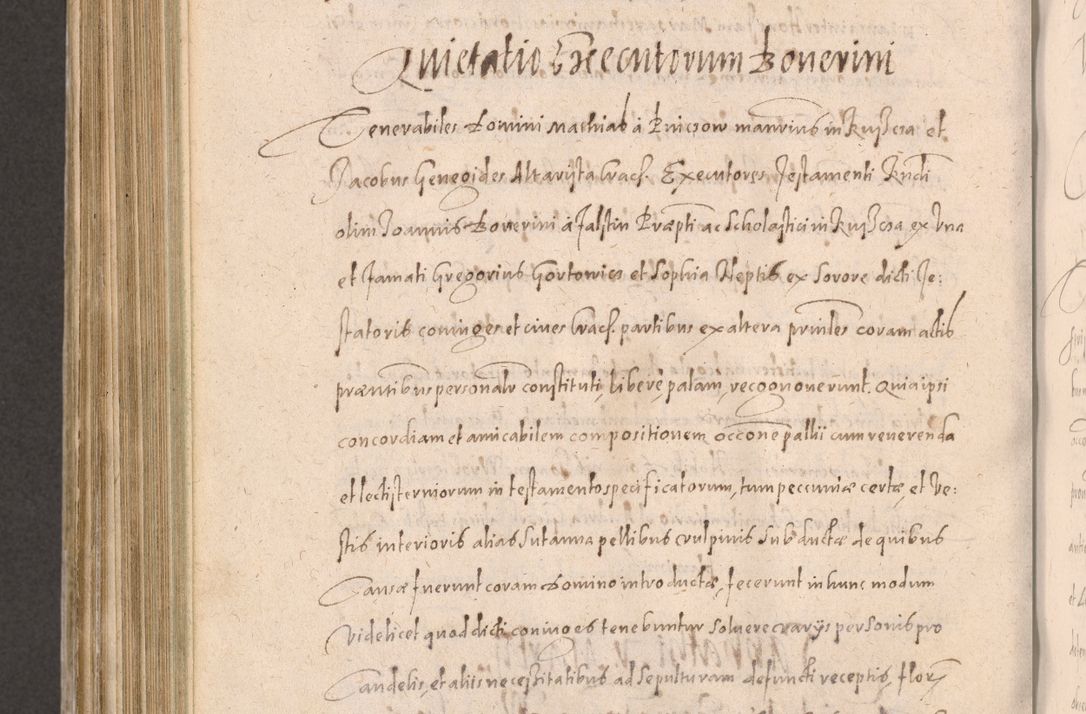 Quietatio Executorum Bonerini
Venerabiles Domini Mathias à Kniczow mansrius in Kuißcia et
Jacobus Genegides Altarista Cracf. Executores Testamenti Rndi
olim Joannis Bonerini à Falstin Præpti ac Scholastici in Kuißcia ex vna
et famati Gregorius Gortowicz et Sophia Neptis ex Sorore dicti Te:
statoris coniuges et ciues Cracf. partibus ex altera prinſles coram actis
præntibus personalr constituti, liberè, palam, recognouerunt. Quia ipsi
concordiam et amicabilem compositionem occōne pallii cum reuerenda
et lectisterniorum in testamento specificatorum, tum peccuniæ certæ, et Ve:
stis interioris alias Sutanna pellibus vulpinis subductæ de quibus
Causæ fuerunt coram Domino introductæ, fecerunt in hunc modum
Videlicet quod dicti coniuges tenebuntur soluere varijs personis pro
Candelis, et aliis necessitatibus ad sepulturam defuncti receptis, flor: